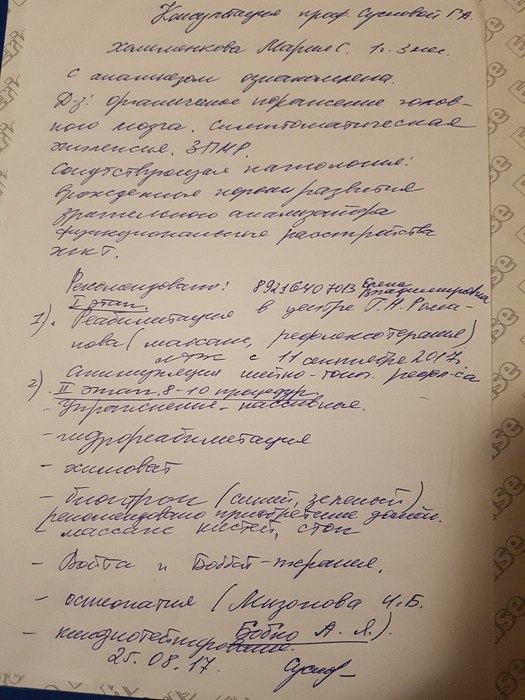 Консультация проф. Сусловой Г.А.
Мария С. 1г. 3 мес.
С анамнезом ознакомлена.
Дз: органическое поражение голов-
ного мозга. Симптоматическая
эпилепсия. ЗПМР.
Сопутствующая патология:
врожденные пороки развития
зрительного анализатора
функциональные расстройства
жкт.
Рекомендовано: 89216407013 Елена Владимировна
I этап.
1). Реабилитация в центре Г.А. Рома-
нова (массаж, рефлексотерапия)
с 11 сентября 2017
Стимуляция шейно-тонич. рефл-са
2) II этап. 8-10 процедур
- Упражнения - пассивные.
- гидрореабилитация
- биоптрон (синий, зеленый)
(рекомендовано приобретение домой.
массаж кистей, стоп
- Войта и Бобат-терапия.
- остеопатия (Мизонова И.Б.
Бобко А. Я.)
- кинезиотейпирование.
25.08.17.